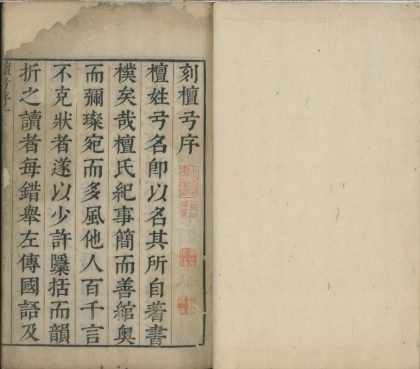 刻檀弓序
檀姓弓名即以名其所自著書
樸矣哉檀氏紀事簡而善綰奧
而彌璨宛而多風他人百千言
不克狀者遂以少許檃括而韻
折之讀者每錯舉左傳國語及
檀弓序